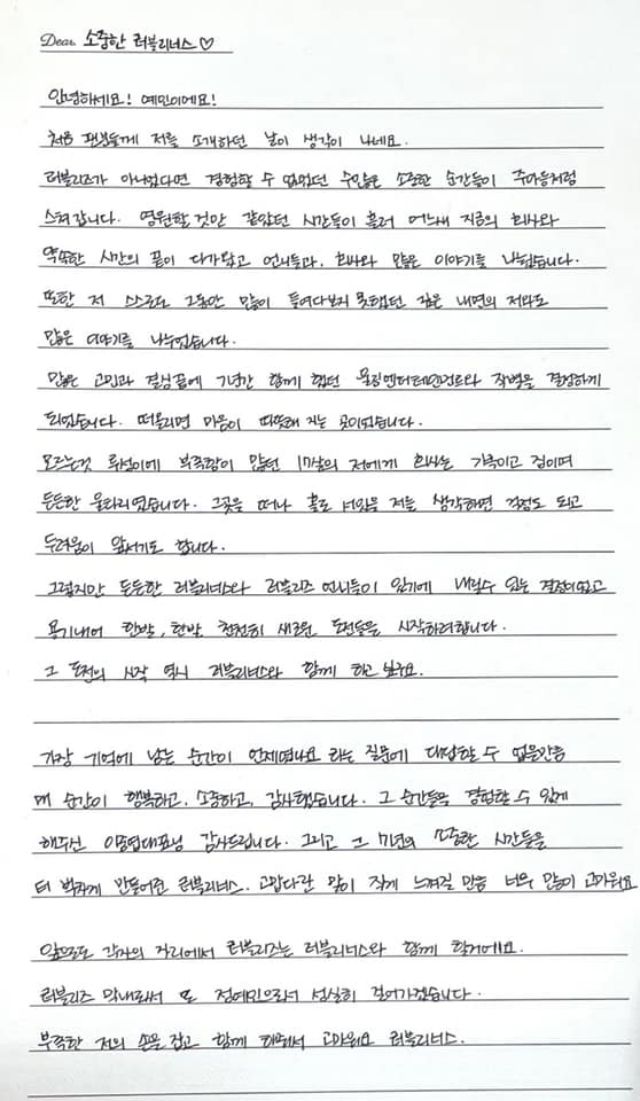 Dear. 소중한 러블리너스♡
안녕하세요! 예인이에요!
처음 팬분들께 저를 소개하던 날이 생각이 나네요.
러블리즈가 아니었다면 경험할 수 없었던 수많은 소중한 순간들이 주마등처럼
스쳐 갑니다. 영원할 것만 같았던 시간들이 흘러 어느새 지금의 회사와
약속한 시간의 끝이 다가왔고 언니들과, 회사와 많은 이야기를 나눴습니다.
또한 저 스스로도 그동안 많이 들여다보지 못했던 깊은 내면의 저와도
많은 이야기를 나누었습니다.
많은 고민과 결심끝에 7년간 함께 했던 울림엔터테인먼트와 작별을 결정하게
되었습니다. 떠올리면 마음이 따뜻해 지는 곳이었습니다.
모르는것 투성이에 부족함이 많던 17살의 저에게 회사는 가족이고 집이며
든든한 울타리였습니다. 그곳을 떠나 홀로 서있을 저를 생각하면 걱정도 되고
두려움이 앞서기도 합니다.
그렇지만 든든한 러블리너스와 러블리즈 언니들이 있기에 내릴수 있는 결정이었고
용기내어 한발, 한발 천천히 새로운 도전들을 시작하려합니다.
그 도전의 시작 역시 러블리너스와 함께 하고 싶구요.
가장 기억에 남는 순간이 언제였나요 라는 질문에 대답할 수 없을만큼
매 순간이 행복하고, 소중하고, 감사했습니다. 그 순간들을 경험할 수 있게
해주신 이중엽대표님 감사드립니다. 그리고 그 7년의 소중한 시간들을
더 벅차게 만들어준 러블리너스. 고맙다란 말이 작게 느껴질 만큼 너무 많이 고마워요
앞으로도 각자의 자리에서 러블리즈는 러블리너스와 함께 할거에요.
러블리즈 막내로서 또 정예인으로서 성실히 걸어가겠습니다.
부족한 저의 손을 잡고 함께 해줘서 고마워요 러블리너스.